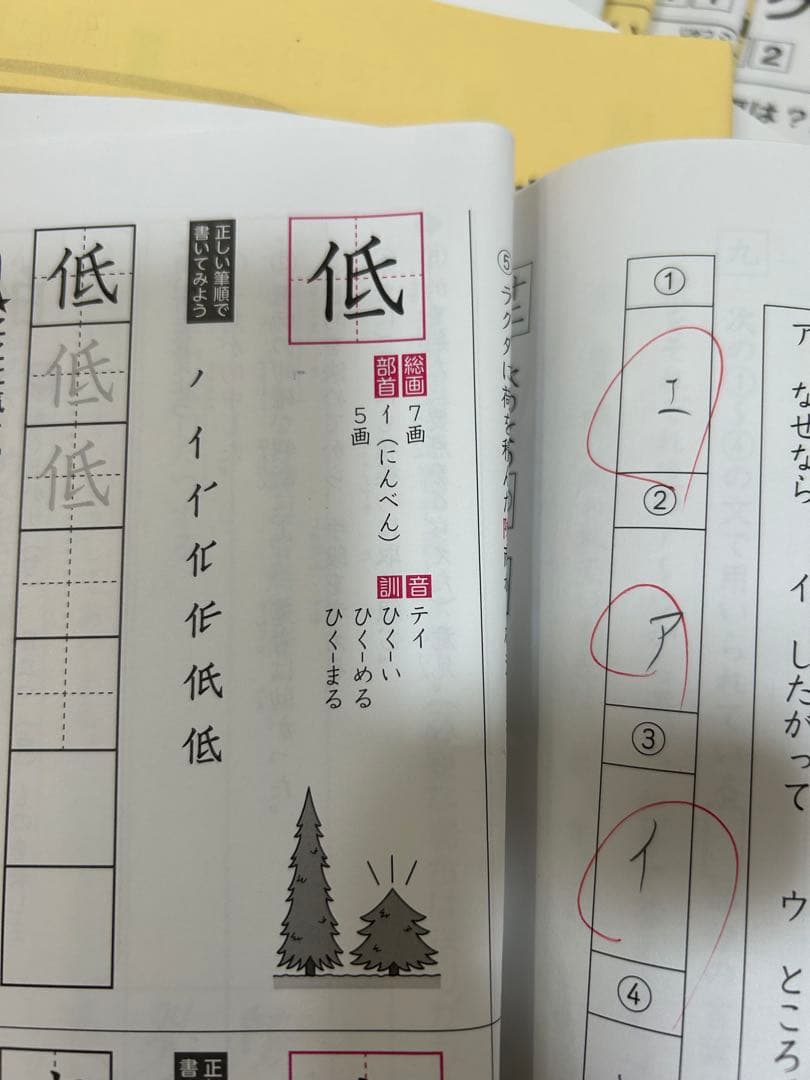 2
は？
低
総画
7画
部首
イ（にんべん）
5画
音
テイ
訓
ひく－い
ひく－める
ひく－まる
正しい筆順で
書いてみよう
ノ
イ
低
低
低
低
⑤ ラクダに荷を積
①
エ
②
ア
③
イ
④
ア なぜなら
イ したがって
ウ ところ
正
書